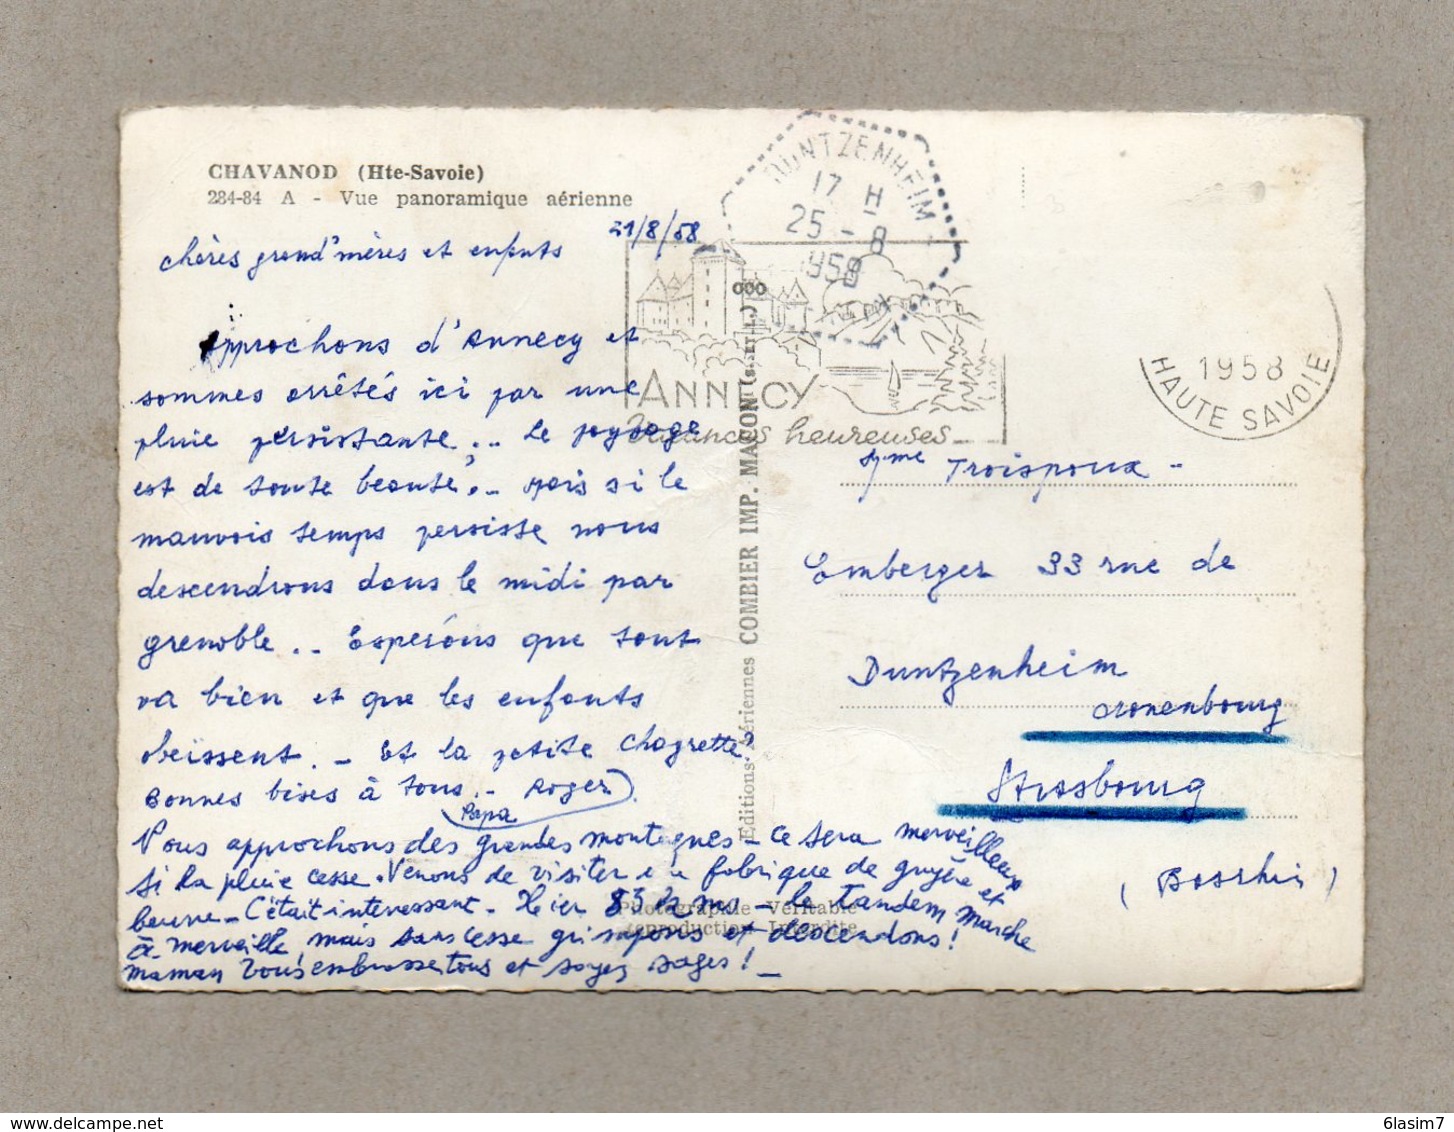 CHAVANOD (Hte-Savoie)
284-84 A - Vue panoramique aérienne
21/8/58
chères grand'mères et enfants
Approchons d'Annecy et
sommes arrêtés ici par une
pluie persistante... Le paysage
est de toute beauté.. Mais si le
mauvois temps persiste nous
descendrons dans le midi par
grenoble... Esperons que tout
va bien et que les enfants
obeissent. - Et la petite
Bonnes bises à tous. - Roger
(Papa)
Nous approchons des grandes montagnes - ce sera merveilleux
si la pluie cesse. Venons de visiter une fabrique de guyère et
beurre - C'était interessant - Hier 83 kms - Le tandem marche
à merveille, mais sans cesse grimpons et descendons!
maman vous embrasse tous et soyez sages! -
Editions Aériennes COMBIER IMP. MACON
Photographie Véritable
reproduction Interdite
DUNTZENHEIM
17 H
25 - 8
1958
ANNECY
Vacances heureuses
1958
HAUTE SAVOIE
Troispoux -
Emberger 33 rue de
Duntzenheim
Cronenbourg
Strasbourg
(Bas rhin)
6lasim7